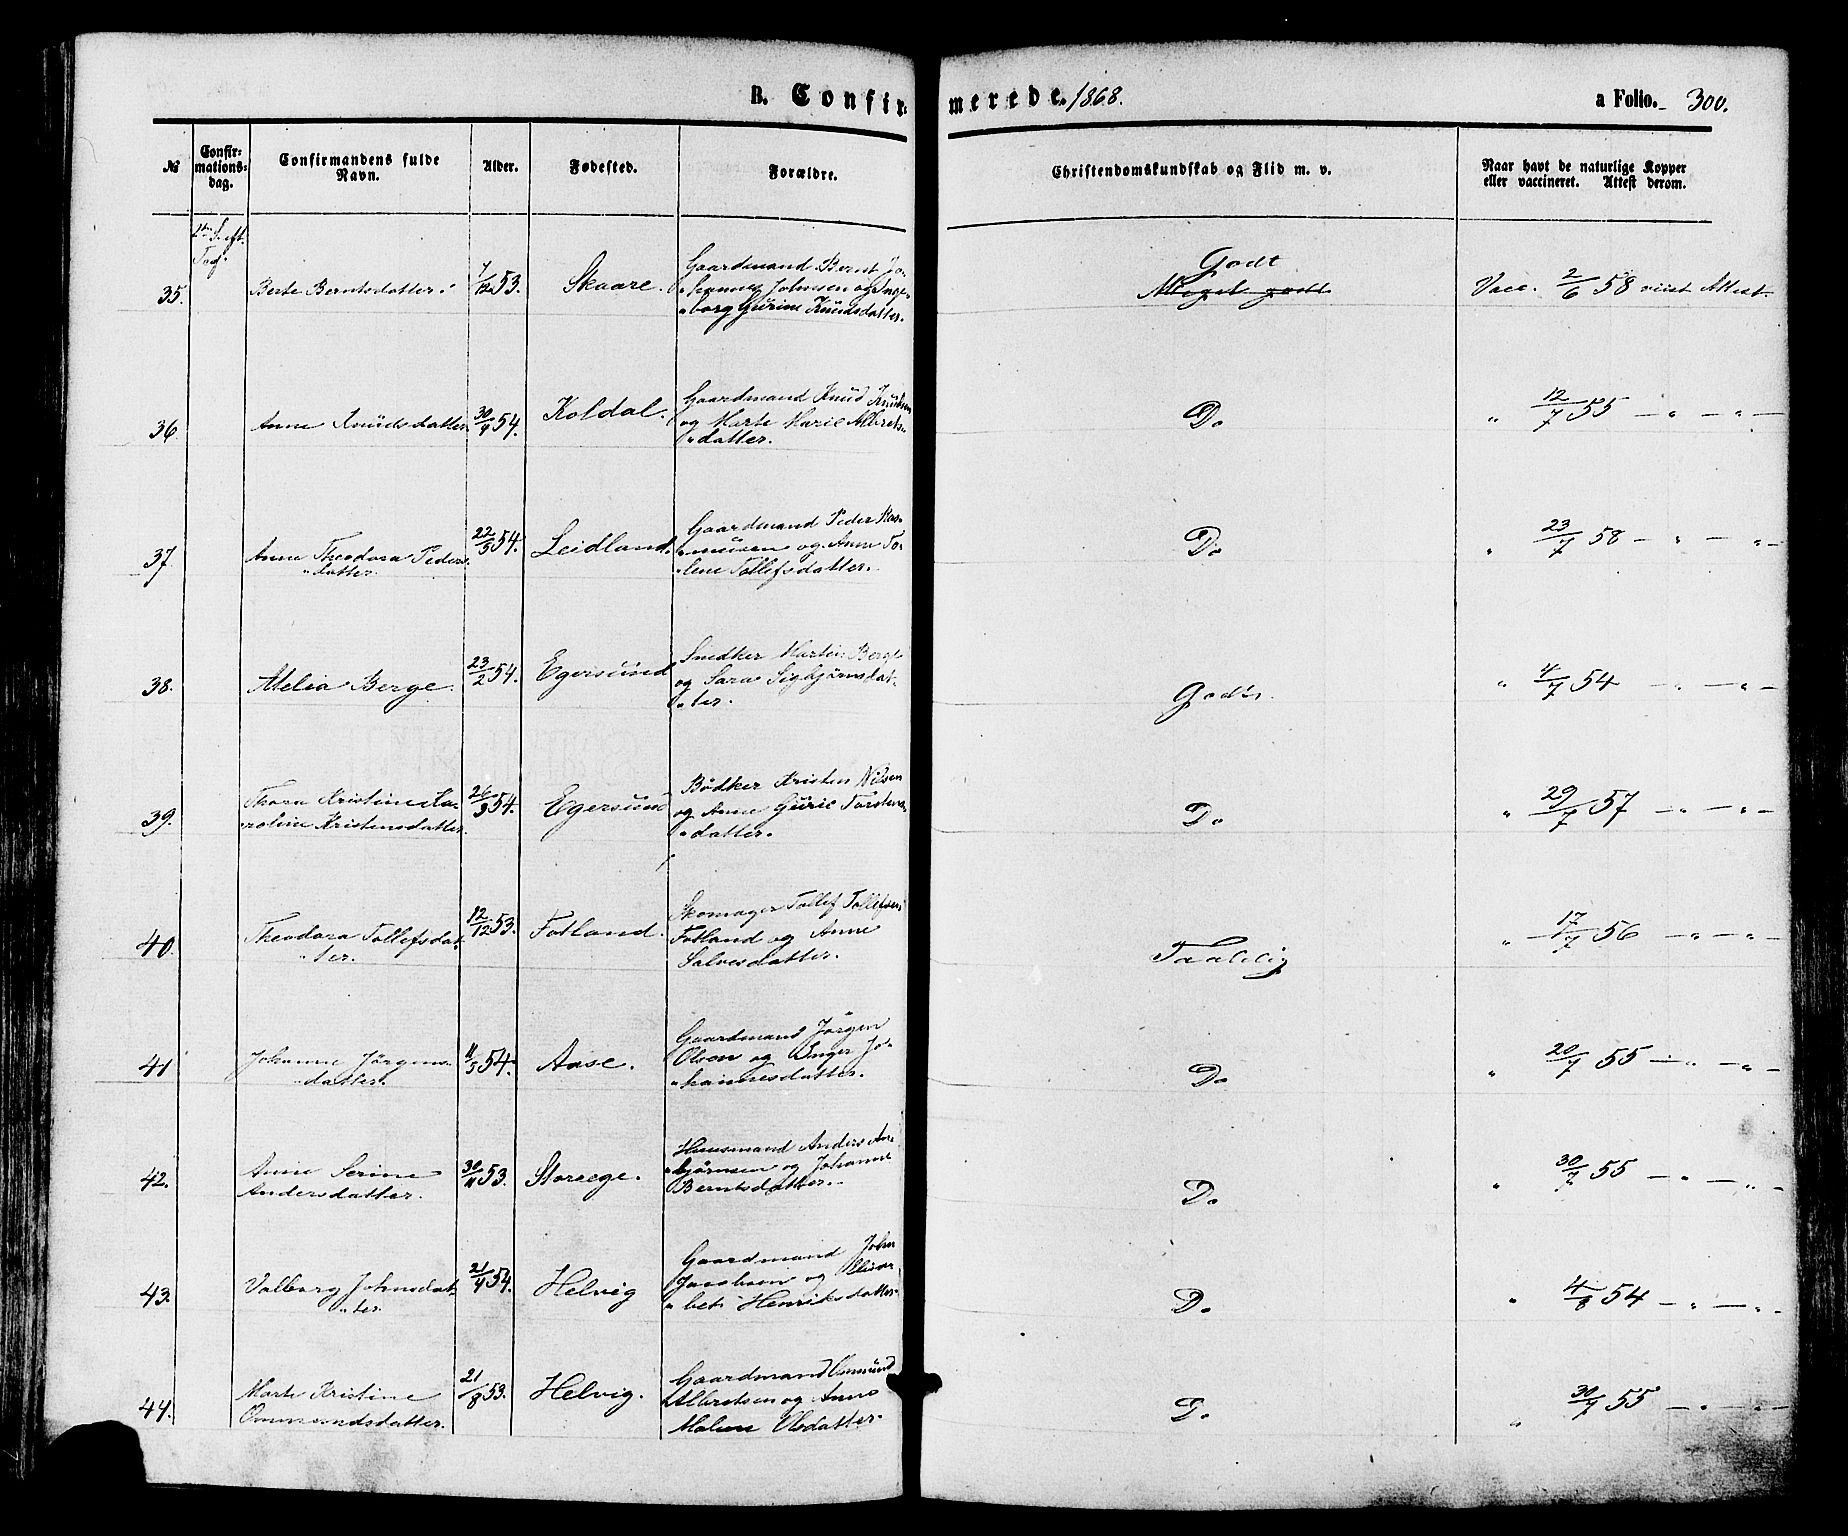 B. Confirmerede. 1868. a Folio. 300.
№ Confirmationsdag. Confirmandens fulde Navn. Alder. Fødested. Forældre. Christendomskundskab og Flid m. v. Naar havt de naturlige Kopper eller vaccineret. Attest derom.
35. Berte Berntsdatter. 7/12 53. Skaare. Gaardmand Bernt Jo-
"hannes Johnsen og Inge-
"borg Gurine Knudsdatter.
Godt
Meget godt
Vacc. 2/6 58 viist Attest.
36. Anne Knudsdatter 30/4 54. Koldal. Gaardmand Knud Knudsen
og Marte Marie Albrets-
"datter.
Do " 12/7 55 — " — " —
37. Anne Theodora Peders-
"datter.
22/3 54. Leidland. Gaardmand Peder Ras-
"musen og Anne To-
"lene Tollefsdatter.
Do " 23/7 58 — " — " —
38. Melia Berge. 23/2 54. Egersund Snedker Martin Berge
og Sara Sigbjørnsdat-
"ter.
Godt. " 4/7 54 — " — " —
39. Thora Kristine Ka-
"roline Kristensdatter
26/3 54. Egersund Bødker Kristen Nilsen
og Anne Gurie Torstens-
"datter.
Do " 29/7 57 — " — " —
40. Theodora Tollefsdat-
"ter.
12/12 53. Fotland. Skomager Tollef Tollefsen
Fotland og Anne
Salvesdatter.
Taalelig " 17/7 56 — " — " —
41 Johanne Jørgens-
"datter.
11/3 54. Aase. Gaardmand Jørgen
Olson og Inger Jo-
"hannesdatter.
Do " 20/7 55 — " — " —
42. Anne Serine
Andersdatter.
30/11 53. Storeege. Huusmand Anders Aas-
"bjørnsen og Johanne
Berntsdatter.
Do " 30/7 55 — " — " —
43. Valborg Johnsdat-
"ter
21/4 54. Helvig Gaardmand John
Jacobsen og Elisa-
"bet Henriksdatter
Do " 4/8 54 — " — " —
44. Marte Kristine
Ommundsdatter.
21/8 53. Helvig. Gaardmand Ommund
Albretsen og Anne
Malene Olsdatter.
Do " 30/7 55 — " — " —